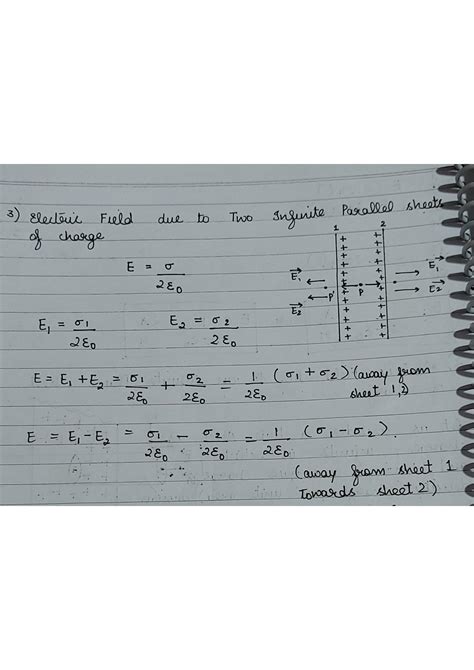 3) Electric Field due to Two Infinite Parallel sheets
of charge
1 2
E = σ / 2ε₀
E₁ = σ₁ / 2ε₀ E₂ = σ₂ / 2ε₀
+ + + + + + + + + + +
+ + + + + + + + + + +
E₁→ E₂→ P' P E₁→ E₂→
E = E₁ + E₂ = σ₁ / 2ε₀ + σ₂ / 2ε₀ = 1 / 2ε₀ (σ₁ + σ₂) (away from
sheet 1,2)
E = E₁ - E₂ = σ₁ / 2ε₀ - σ₂ / 2ε₀ = 1 / 2ε₀ (σ₁ - σ₂).
(away from sheet 1
Towards sheet 2)